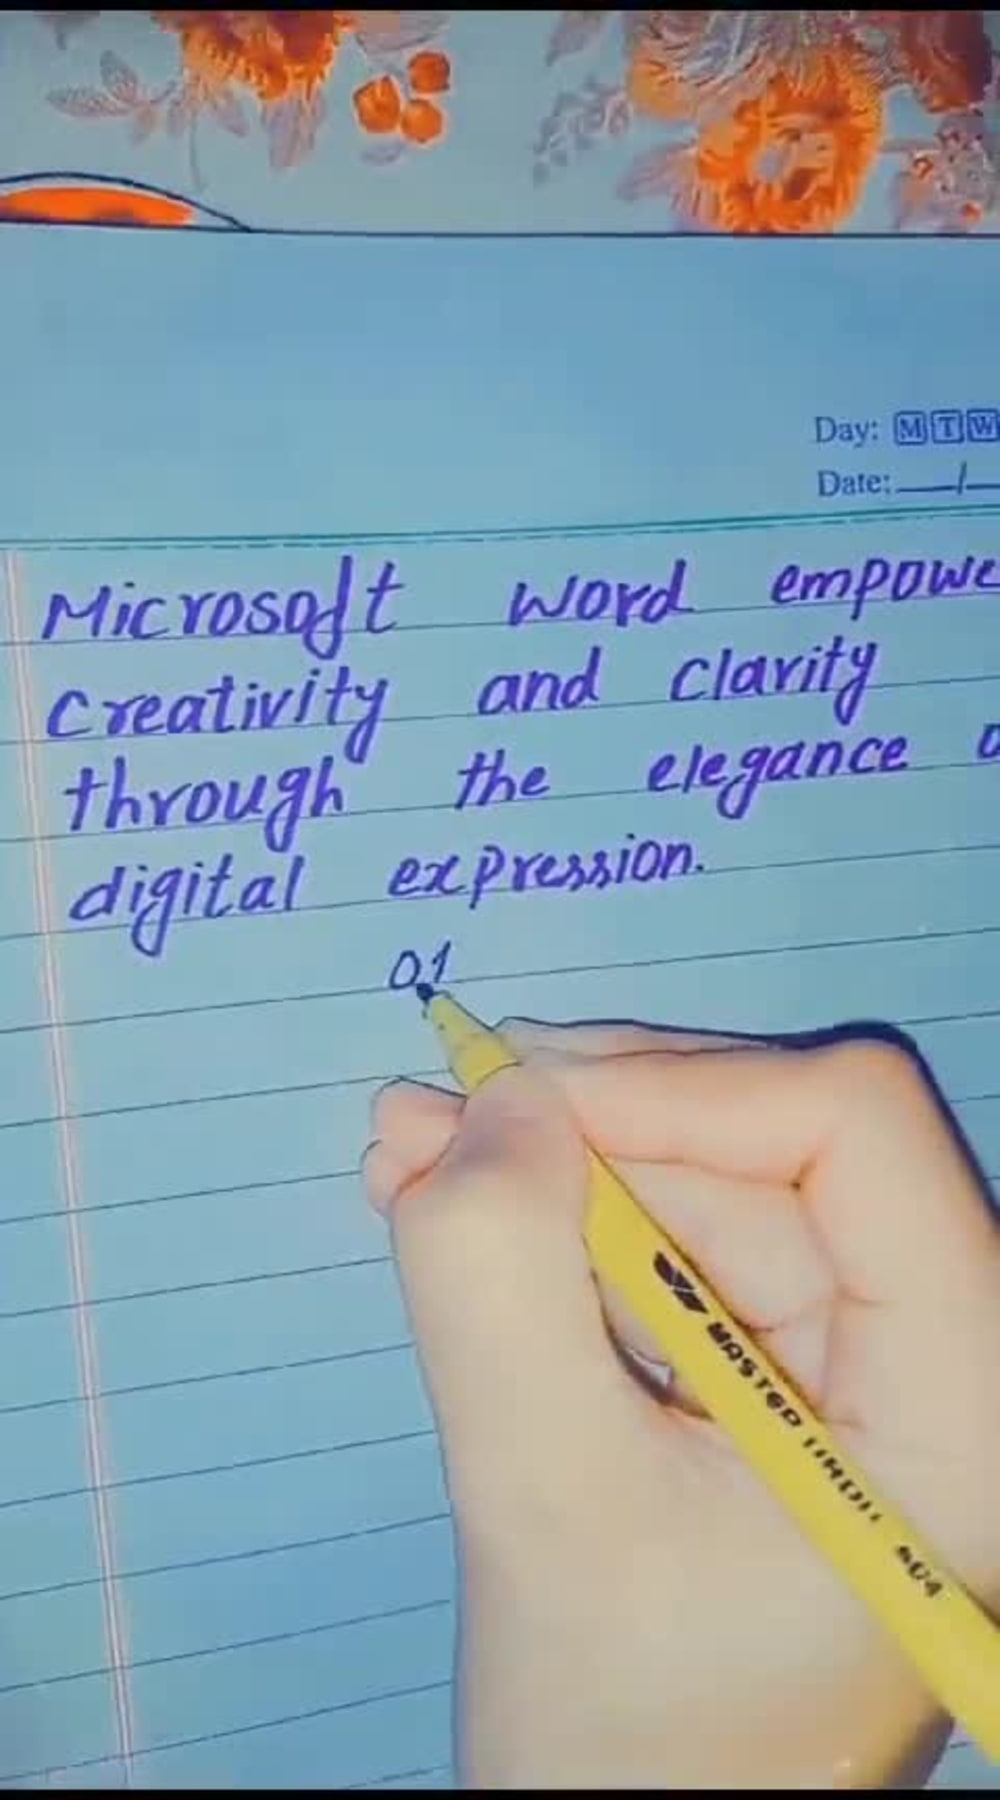 Day: M T W
Date:___/__
Microsoft word empowe
creativity and clarity
through the elegance o
digital expression.
01